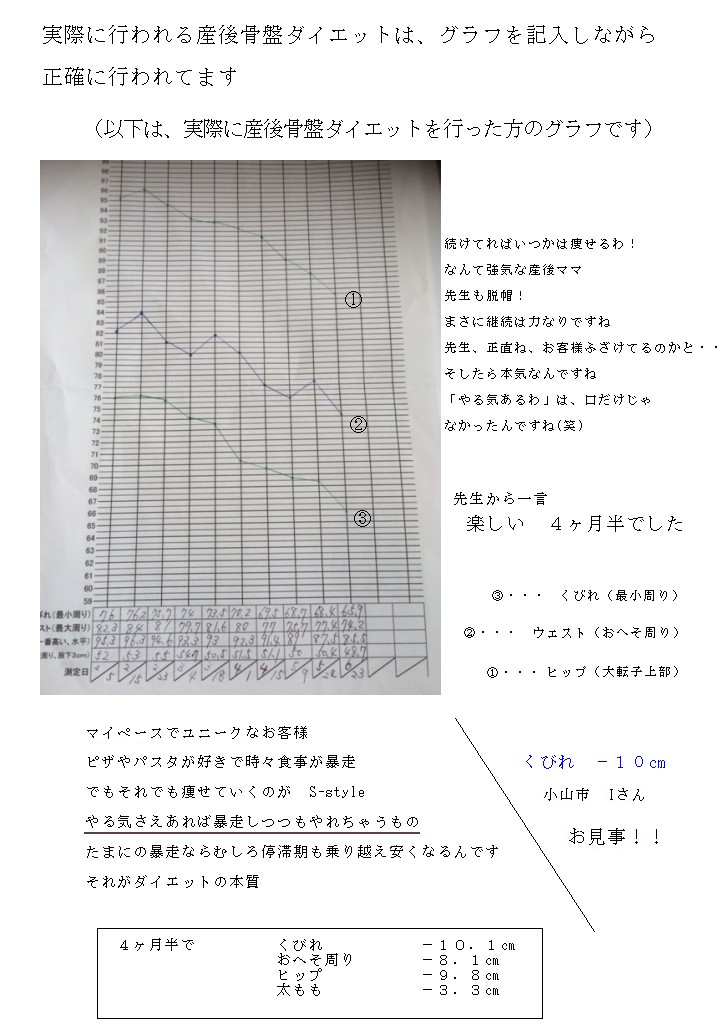 実際に行われる産後骨盤ダイエットは、グラフを記入しながら
正確に行われてます
（以下は、実際に産後骨盤ダイエットを行った方のグラフです）
96
95
94
93
92
91
90
89
88
87
86
85
84
83
82
81
80
79
78
77
76
75
74
73
72
71
70
69
68
67
66
65
64
63
62
61
60
59
①
②
③
びれ(最小周り) 76 76.2 74 73.5 70.2 69.5 68.7 68.4 65.9
スト(最大周り) 82.3 84 81 79.7 81.6 80 77 77.4 74.2
一番高い、水平) 95.3 96.3 94.6 93.3 93 92.3 91.4 89 87.5 85.5
周り、股下3cm) 52 53 55 54.7 50.5 51.5 51.1 50 50.4 48.7
測定日
続けてればいつかは痩せるわ！
なんて強気な産後ママ
先生も脱帽！
まさに継続は力なりですね
先生、正直ね、お客様ふざけてるのかと・・
そしたら本気なんですね
「やる気あるわ」は、口だけじゃ
なかったんですね(笑)
先生から一言
楽しい　４ヶ月半でした
③・・・　くびれ（最小周り）
②・・・　ウェスト（おへそ周り）
①・・・ヒップ（大転子上部）
マイペースでユニークなお客様
ピザやパスタが好きで時々食事が暴走
でもそれでも痩せていくのが　S-style
やる気さえあれば暴走しつつもやれちゃうもの
たまにの暴走ならむしろ停滞期も乗り越え安くなるんです
それがダイエットの本質
くびれ　－１０㎝
小山市　Iさん
お見事！！
４ヶ月半で　くびれ　－１０．１㎝
おへそ周り　－８．１㎝
ヒップ　－９．８㎝
太もも　－３．３㎝